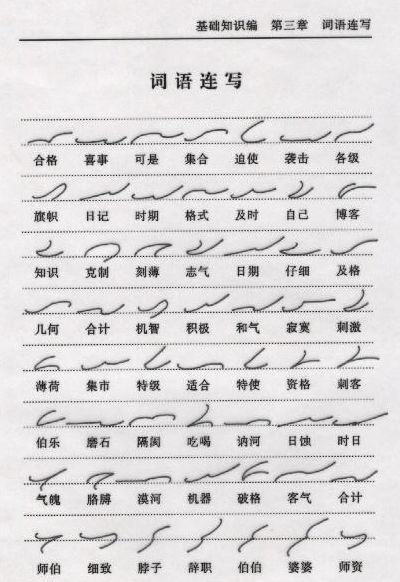 基础知识编 第三章 词语连写
词语连写
合格 喜事 可是 集合 迫使 袭击 各级
旗帜 日记 时期 格式 及时 自己 博客
知识 克制 刻薄 志气 日期 仔细 及格
几何 合计 机智 积极 和气 寂寞 刺激
薄荷 集市 特级 适合 特使 资格 刺客
伯乐 磨石 隔阂 吃喝 讷河 日蚀 时日
气魄 胳膊 漠河 机器 破格 客气 合计
师伯 细致 脖子 辞职 伯伯 婆婆 师资